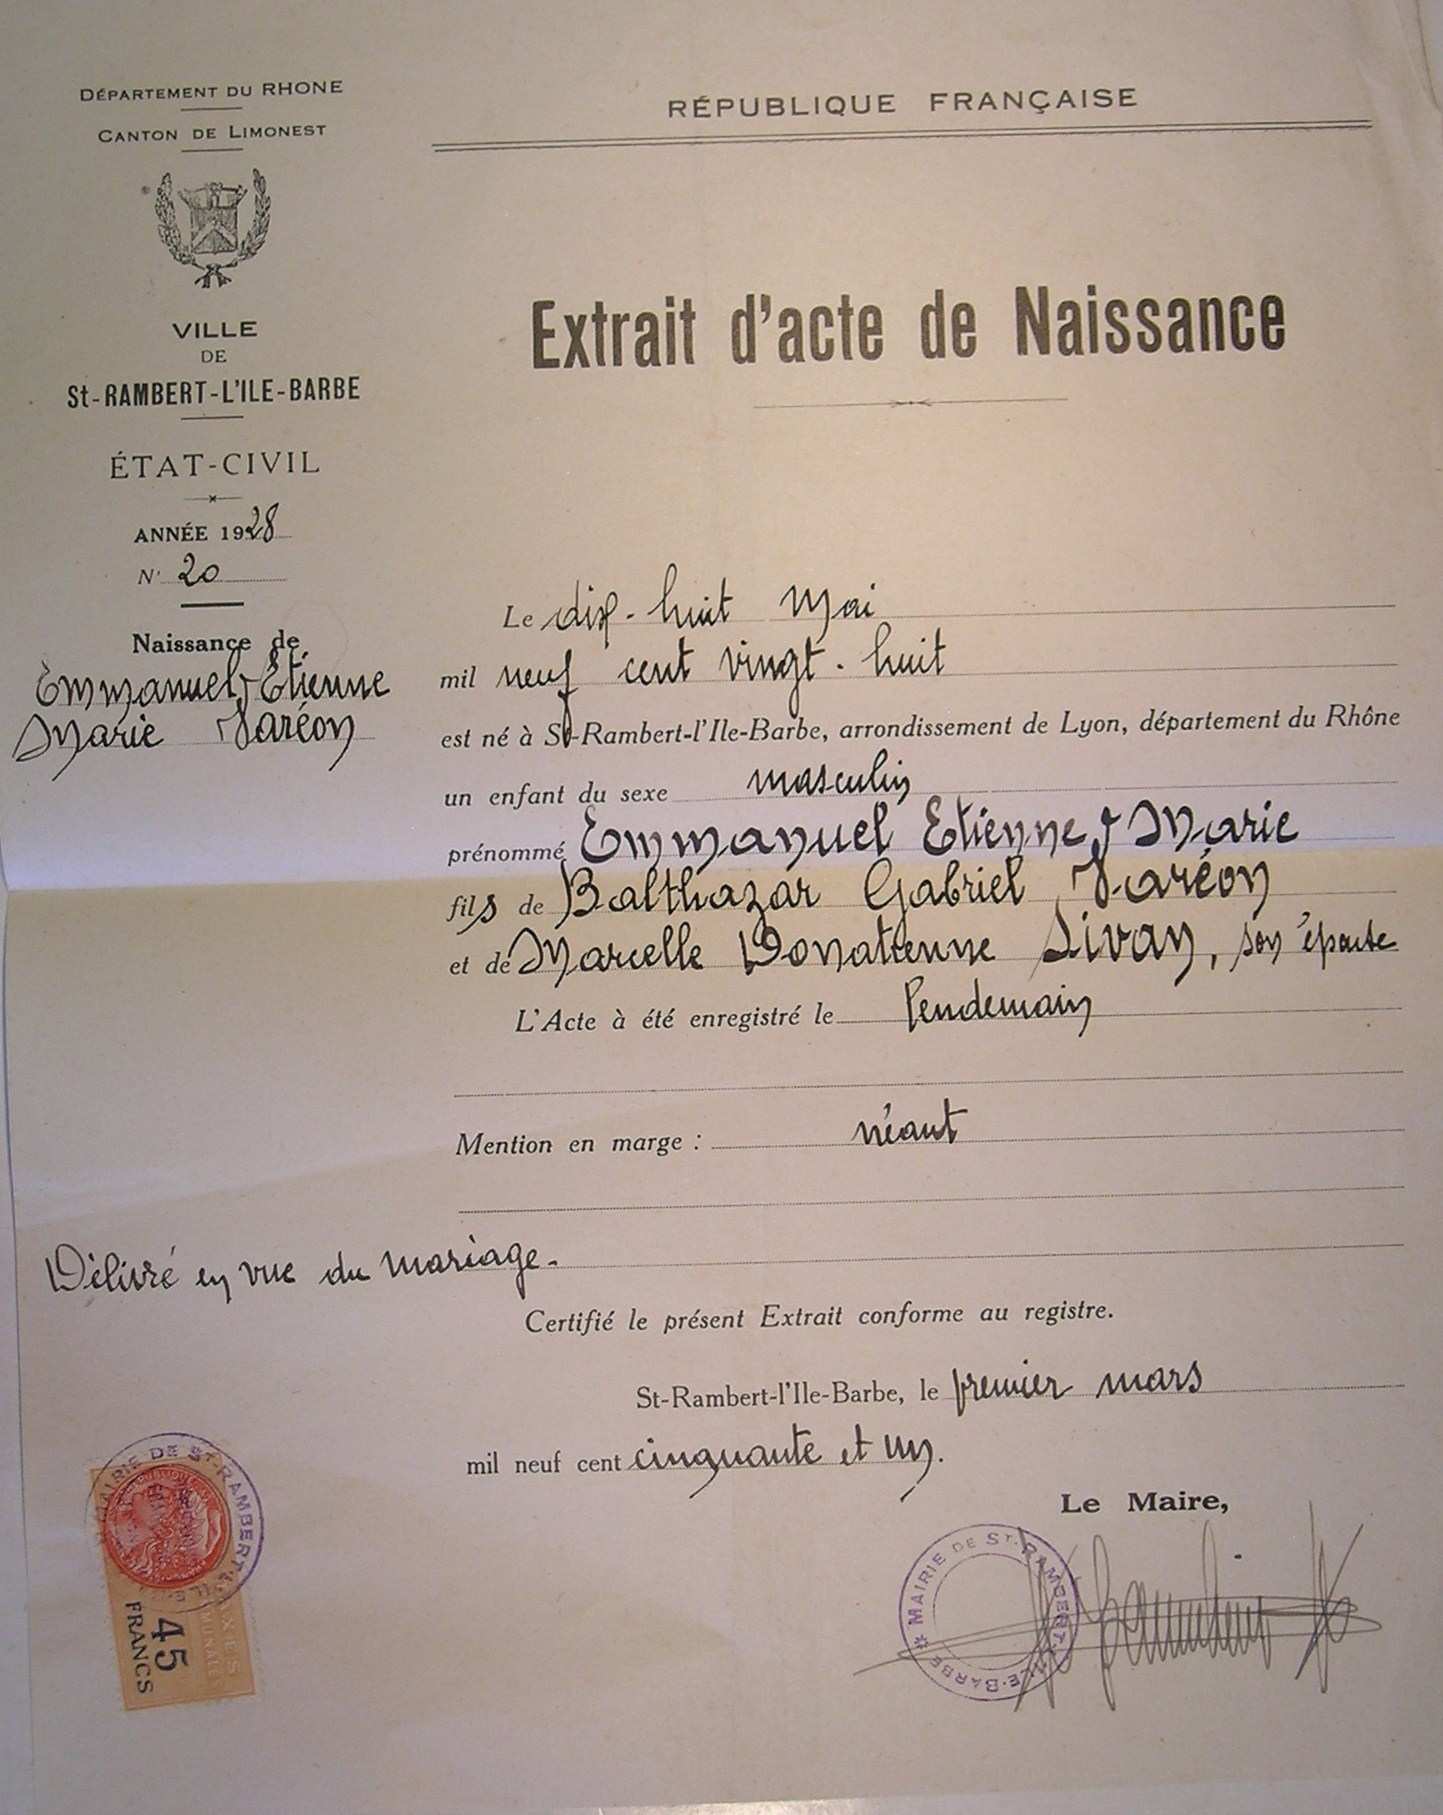 DÉPARTEMENT DU RHONE
CANTON DE LIMONEST
VILLE
DE
St-RAMBERT-L'ILE-BARBE
ÉTAT-CIVIL
ANNÉE 1928
N° 20
Naissance de
Emmanuel, Etienne
Marie Varéon
RÉPUBLIQUE FRANÇAISE
Extrait d'acte de Naissance
Le dix-huit Mai
mil neuf cent vingt-huit
est né à St-Rambert-l'Ile-Barbe, arrondissement de Lyon, département du Rhône
un enfant du sexe masculin
prénommé Emmanuel Etienne, Marie
fils de Balthazar Gabriel Varéon
et de Marcelle Donatienne Sivan, son épouse
L'Acte à été enregistré le lendemain
Mention en marge : néant
Délivré en vue du mariage.
Certifié le présent Extrait conforme au registre.
St-Rambert-l'Ile-Barbe, le premier mars
mil neuf cent cinquante et un.
Le Maire,
MAIRIE DE ST-RAMBERT-L'ILE-BARBE
MAIRIE DE ST-RAMBERT
45
FRANCS